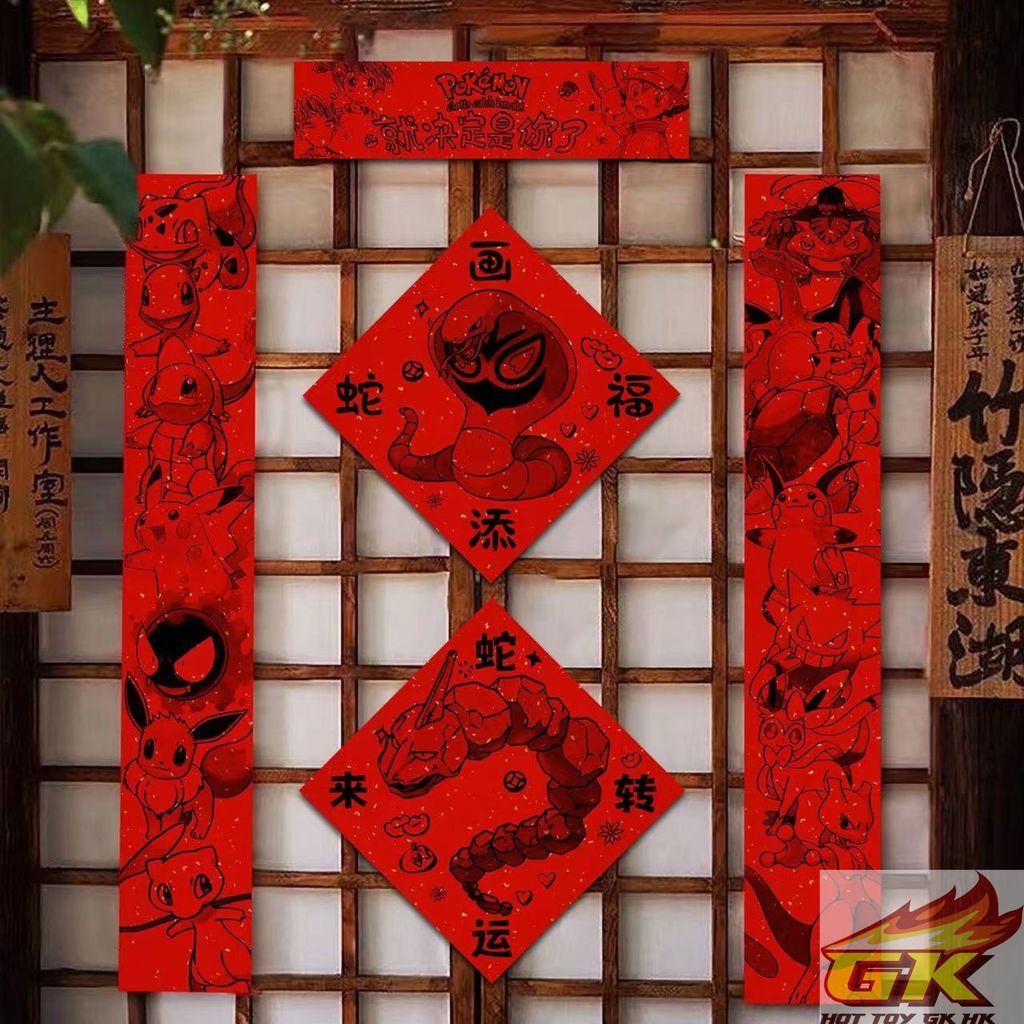 POKéMON
Gotta catch 'em all!
就决定是你了
画
蛇 福
添
蛇
来 转
运
主理人工作室
(周五周六)
始延庚子年
竹隱東湖
GK
HOT TOY GK HK